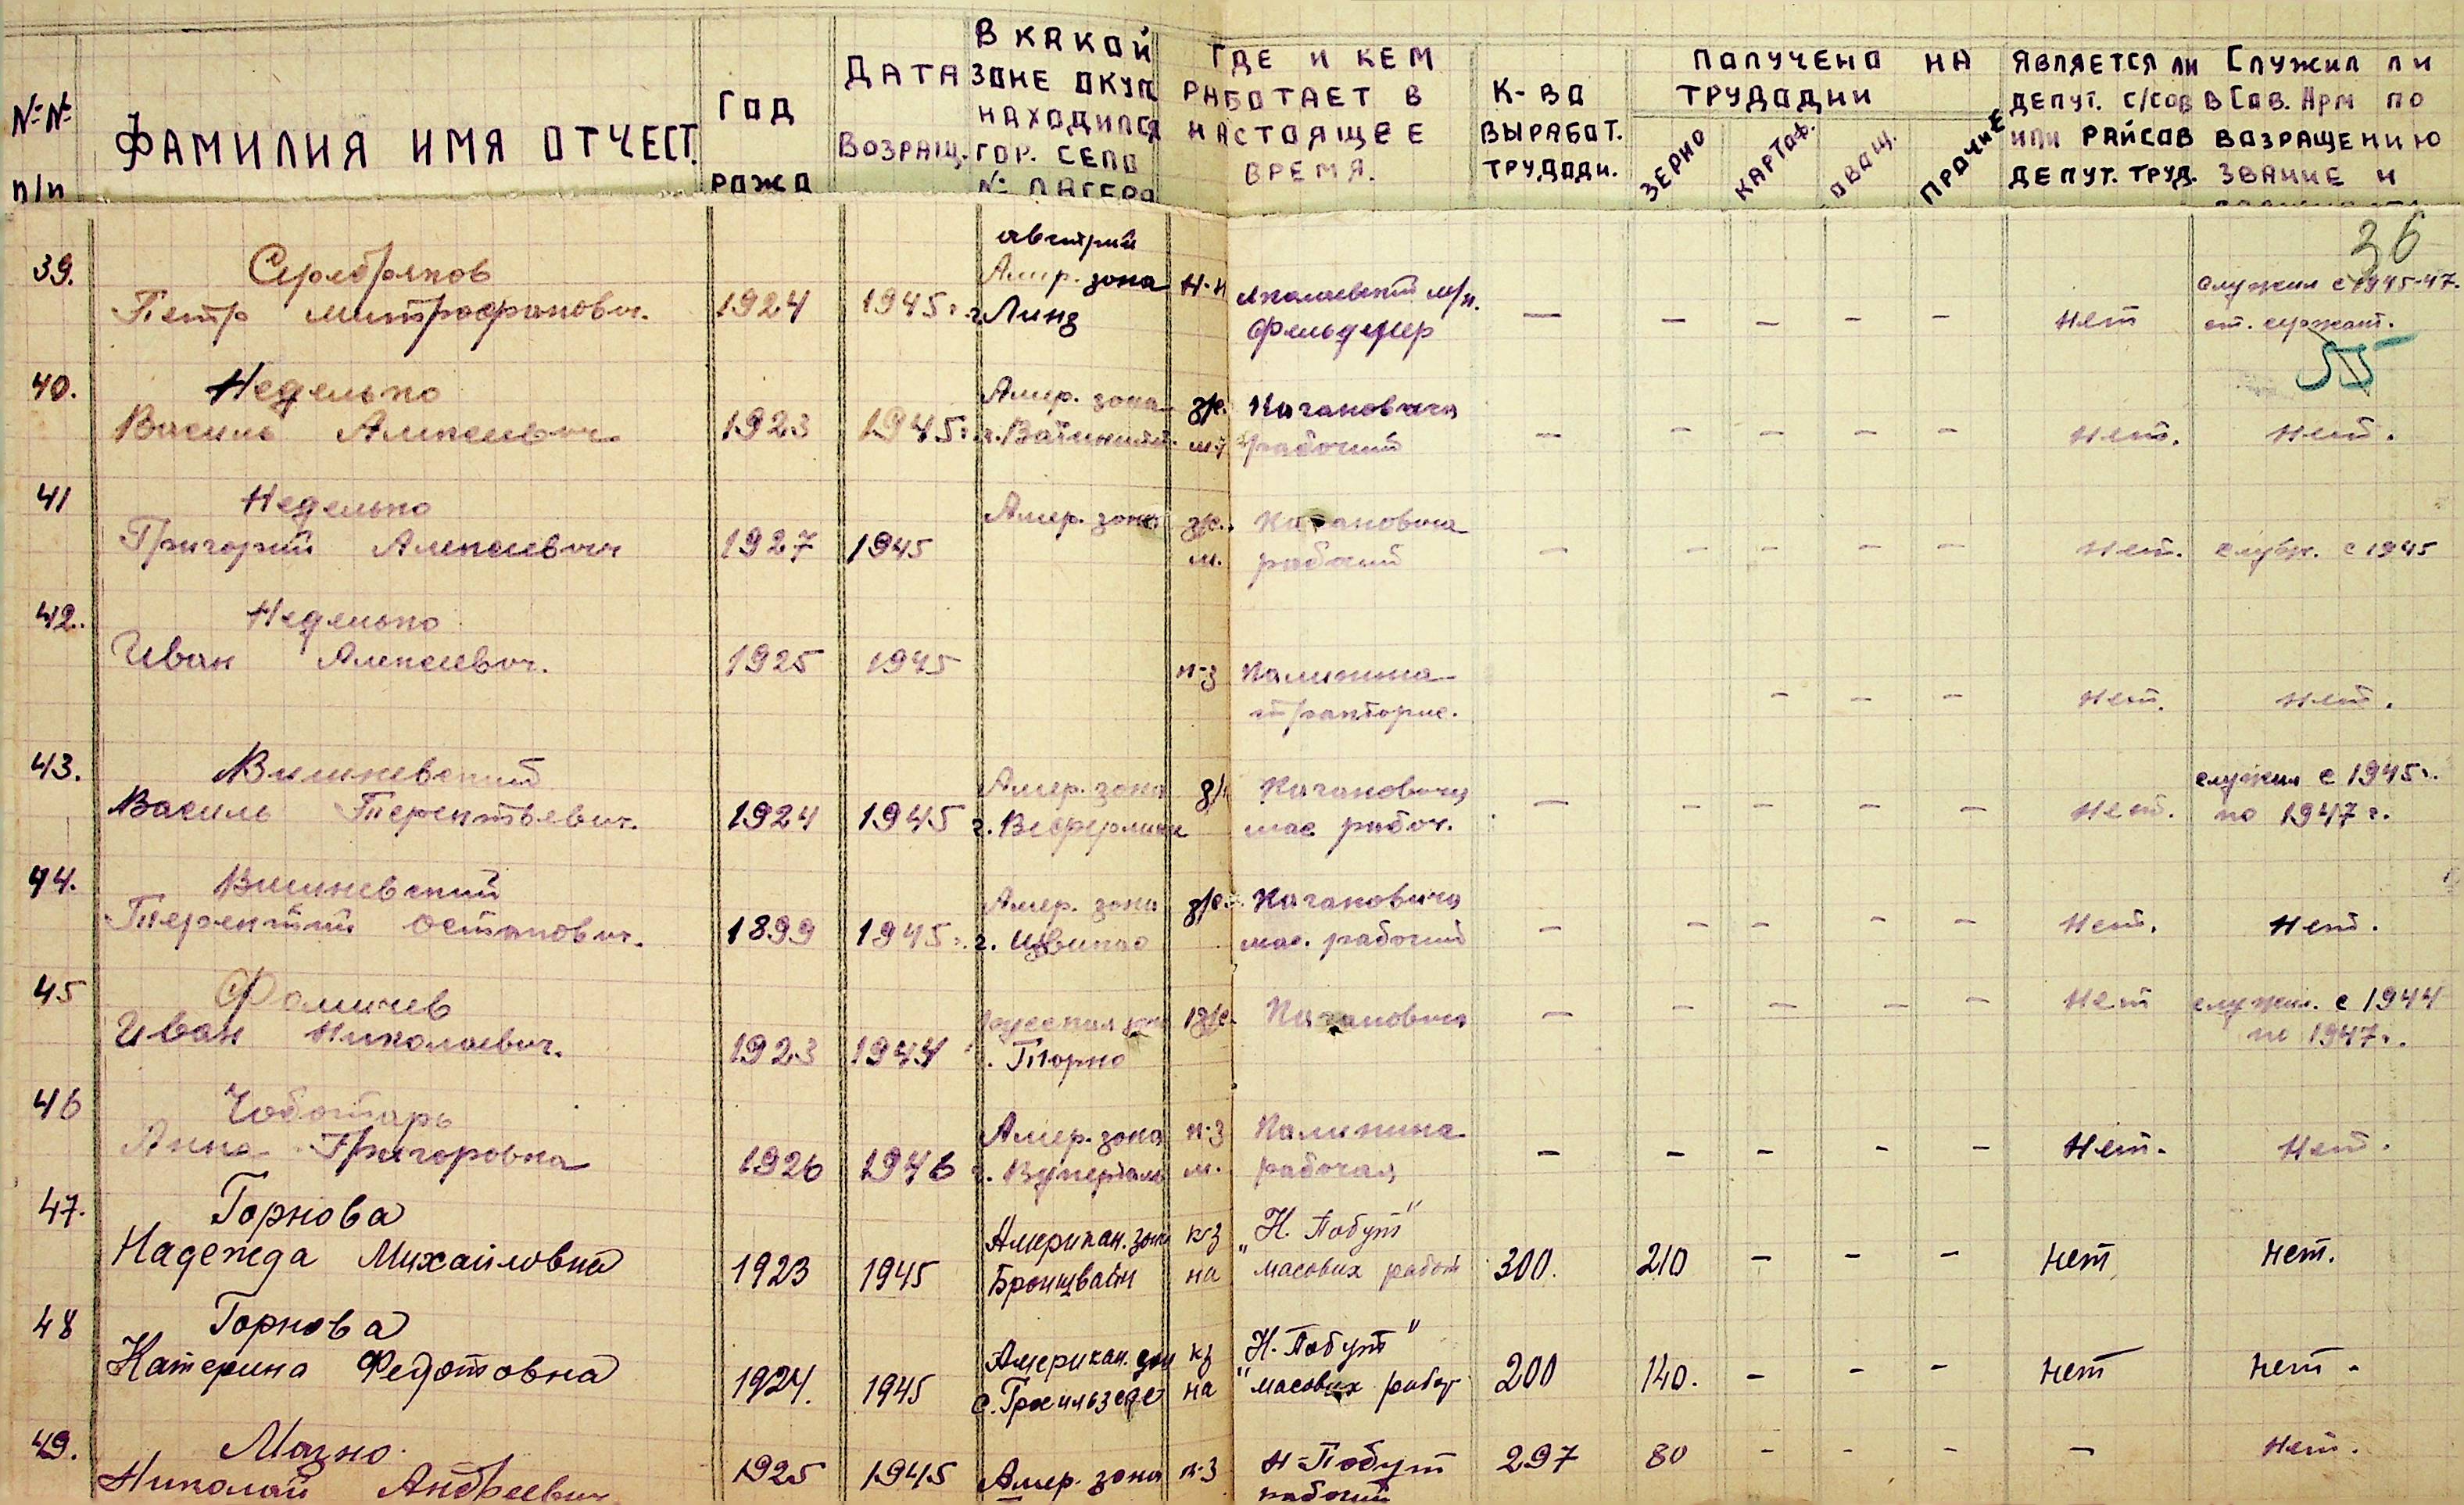 №№ п/п
ФАМИЛИЯ ИМЯ ОТЧЕСТ.
ГОД РОЖД
ДАТА ВОЗРАЩ.
В КАКОЙ
ЗОНЕ ОКУП
НАХОДИЛСЯ
ГОР. СЕЛО
№ ЛАГЕРЯ
ГДЕ И КЕМ
РАБОТАЕТ В
НАСТОЯЩЕЕ
ВРЕМЯ.
К-ВО
ВЫРАБОТ.
ТРУДОДН.
ПОЛУЧЕНО НА
ТРУДОДНИ
ЗЕРНО
КАРТОФ.
ОВОЩ.
ПРОЧИЕ
ЯВЛЯЕТСЯ ЛИ
ДЕПУТ. С/СОВ
ИЛИ РАЙСОВ
ДЕПУТ. ТРУД.
СЛУЖИЛ ЛИ
В СОВ. АРМ ПО
ВОЗРАЩЕНИЮ
ЗВАНИЕ И
36
39. Серебряков
Петр Митрофанович. 1924 1945г.
Австрий
Амер. зона
г. Линз
Н-Н м/п.
фельдшер
— — — — — нет
служил с 1945-47.
ст. сержант.
55
40. Неделько
Василь Алексеевич. 1923 1945г.
Амер. зона
з/с. Кагановича
рабочий
— — — — — нет. нет.
41 Неделько
Григорий Алексеевич 1927 1945
Амер. зона
з/с. Кагановича
м. рабочий
— — — — — нет. служ. с 1945
42. Неделько
Иван Алексеевич. 1925 1945
к-з Калинина
тракторис.
— — — нет. нет.
43. Вишневский
Василь Терентьевич. 1924 1945
Амер. зона
Кагановича
мас рабоч.
— — — — — нет.
служил с 1945г.
по 1947 г.
44. Вишневский
Терентий Остапович. 1899 1945г.
Амер. зона
г. Цвикао
з/с. Кагановича
мас. рабочий
— — — — — нет. нет.
45 Фомичев
Иван Николаевич. 1923 1944
русская зона
г. Торно
з/с. Кагановича
— — — — — нет
служил. с 1944
по 1947г.
46 Чоботарь
Анна Григоровна 1926 1946
Амер. зона
г. Вуперталь
к-з Калинина
м. рабочая
— — — — — нет. нет.
47. Горнова
Надежда Михайловна 1923 1945
Американ. зона
Бронцвайн
кз "Н. Побут"
на масових работ
300. 210 — — — нет нет.
48 Горнова
Катерина Федотовна 1924. 1945
Американ. зон
кз "Н. Побут"
на масових работ
200 140. — — — нет нет.
49. Махно
Николай Андреевич 1925 1945
Амер. зона
к-з Н-Побут
рабочий
297 80 — — — — нет.